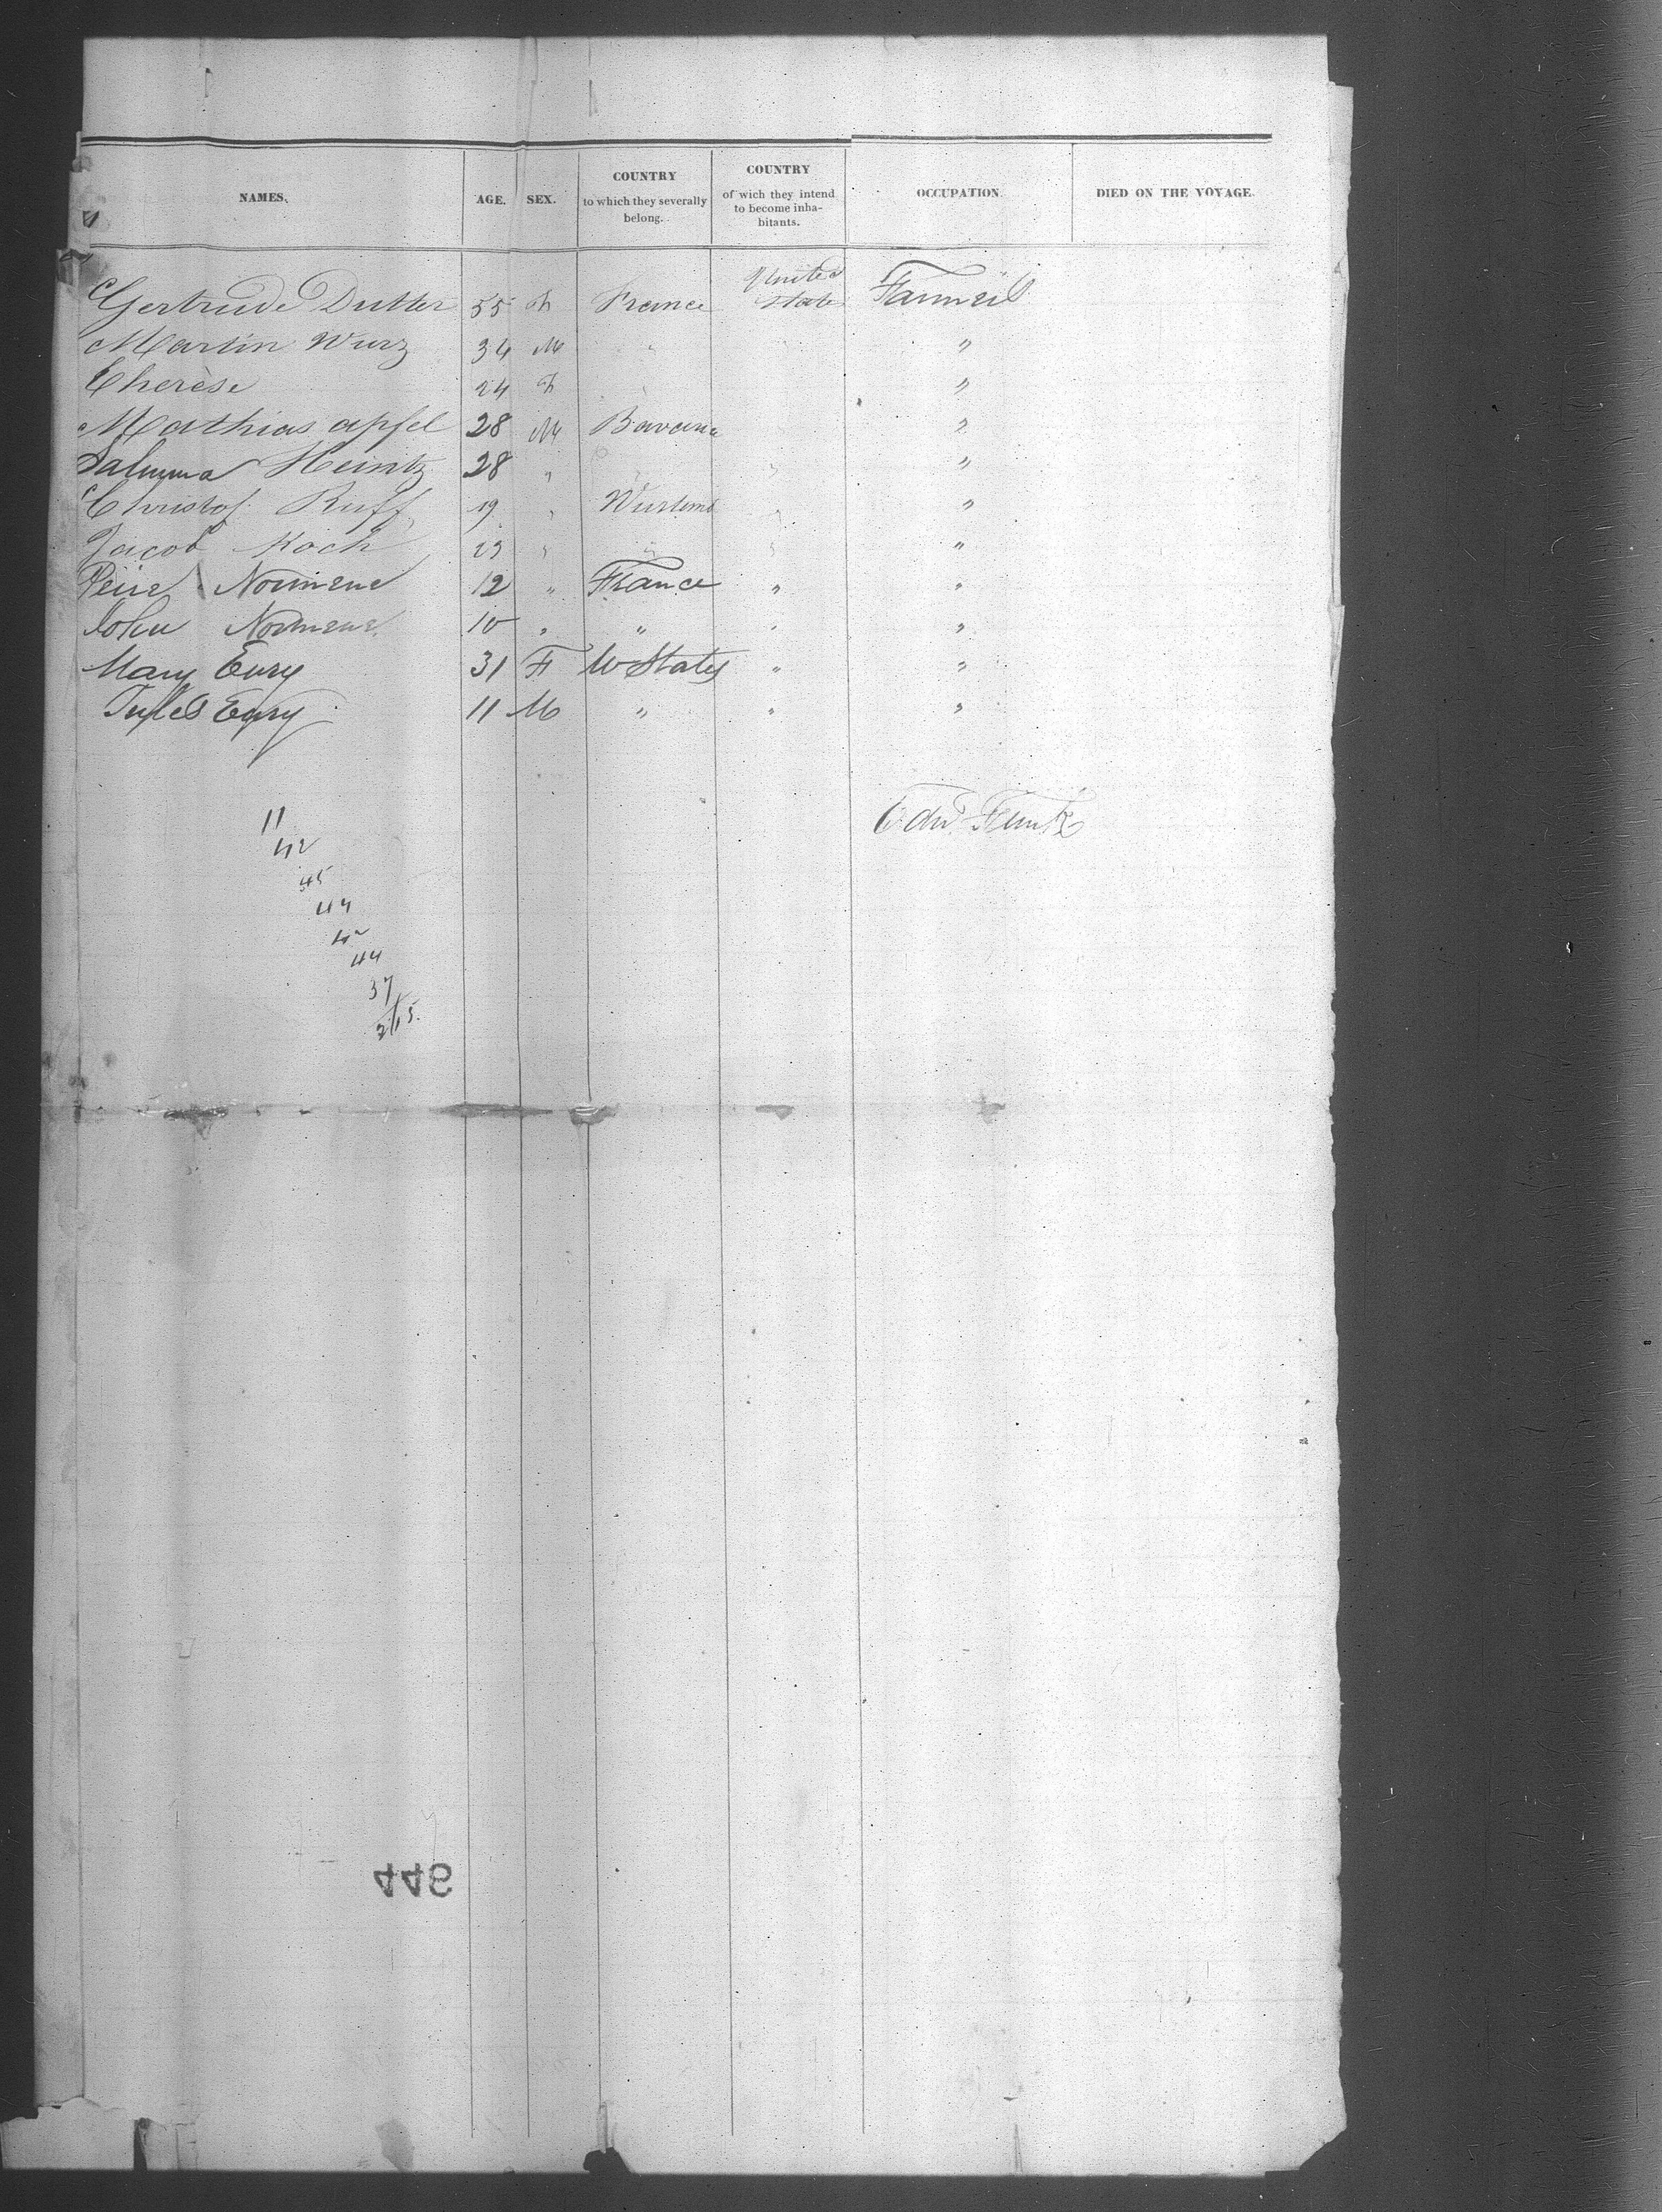 NAMES. AGE. SEX. COUNTRY to which they severally belong. COUNTRY of wich they intend to become inha-bitants. OCCUPATION. DIED ON THE VOYAGE.
Gertrude Dutter 55 F France United State Farmers
Martin Wurz 34 M " "
Therèse 24 F " "
Mathias apfel 28 M Bavaria "
Heintz 28 " " " "
Christof Ruff 19 " Wurtemb " "
Jacob Koch 23 " " " "
12 " France " "
John 10 " " " "
Mary Eury 31 F U States " "
Jules Eury 11 M " " "
Edw Funk
11
42
45
44
42
44
37
446